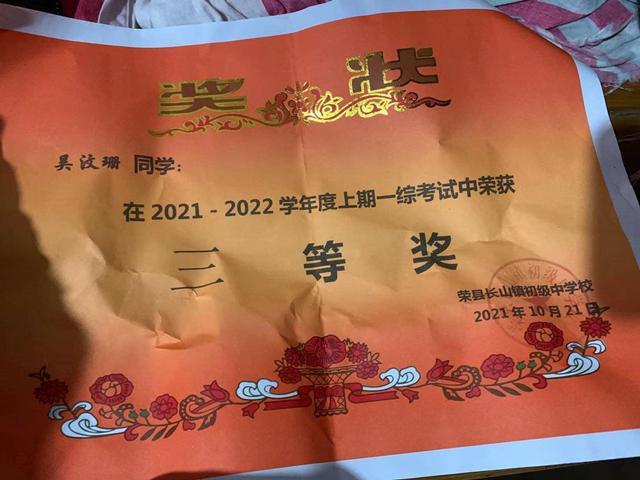 奖状
吴汶珊 同学：
在 2021 - 2022 学年度上期一综考试中荣获
三等奖
荣县长山镇初级中学校
2021 年 10 月 21 日